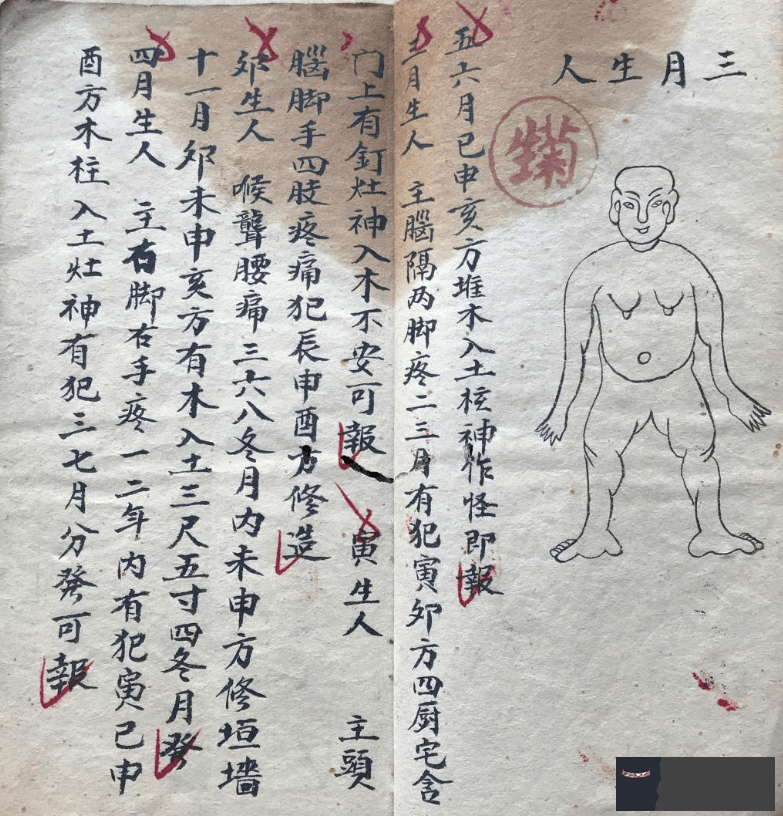 三月生人
五六月已申亥方堆木入土核神作怪即報
正月生人　主腦隔两脚疼二三月有犯寅夘方四厨宅舍
门上有釘灶神入木不安可報　寅生人　主頭
腦脚手四肢疼痛犯辰申酉方修造
夘生人　喉聾腰痛三六八冬月内未申方修垣墻
十一月夘未申亥方有木入土三尺五寸四冬月發
四月生人　主右脚右手疼一二年内有犯寅已申
酉方木柱入土灶神有犯三七月分發可報